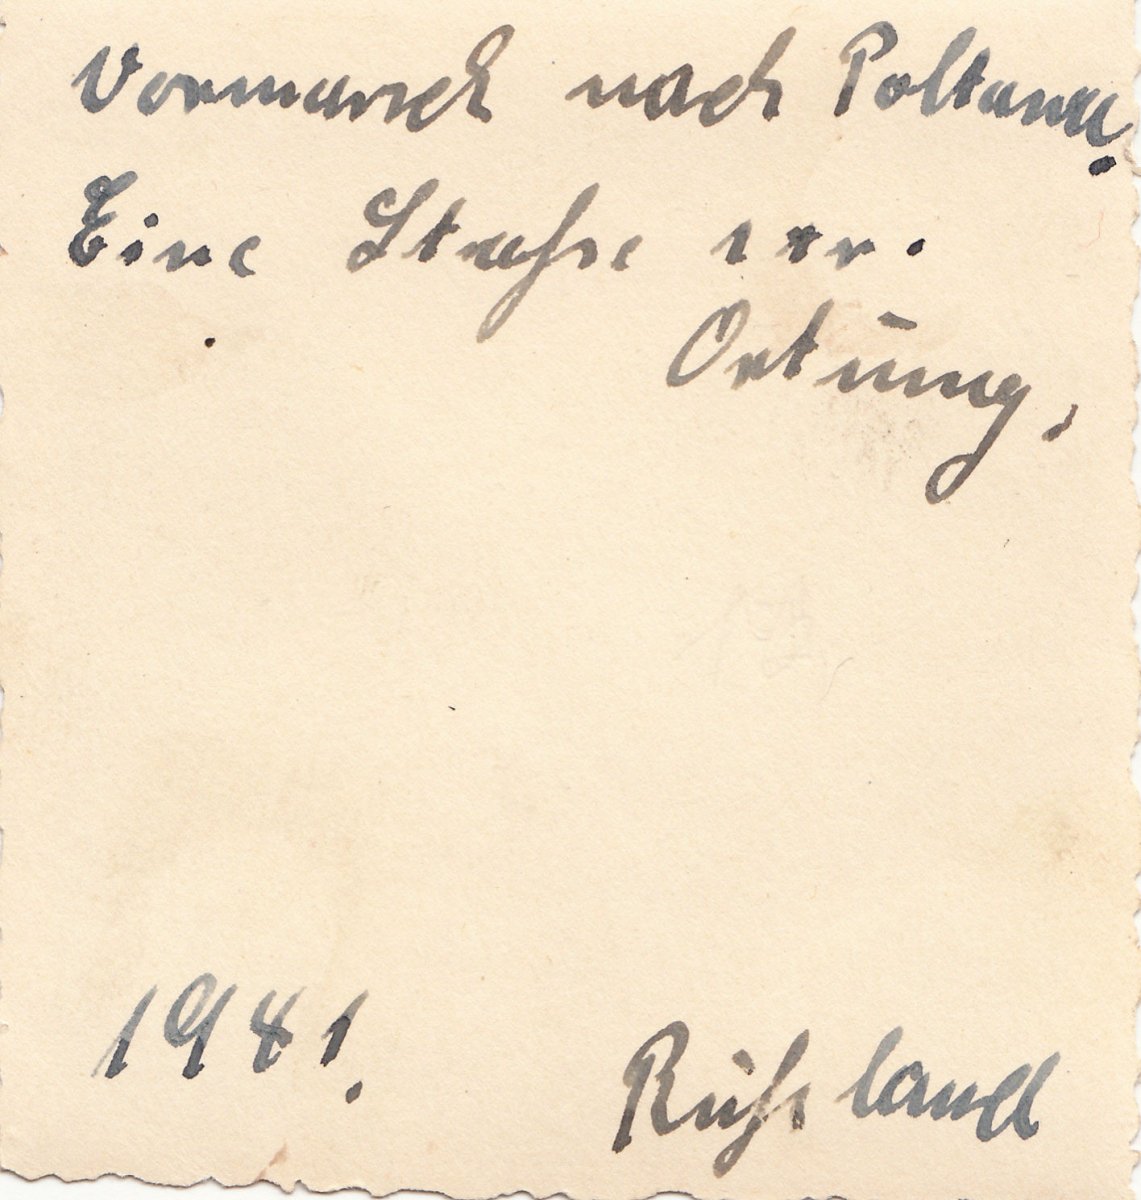 Vormarsch nach Poltawa.
Eine Straße
Ortung,
1941.
Rußland